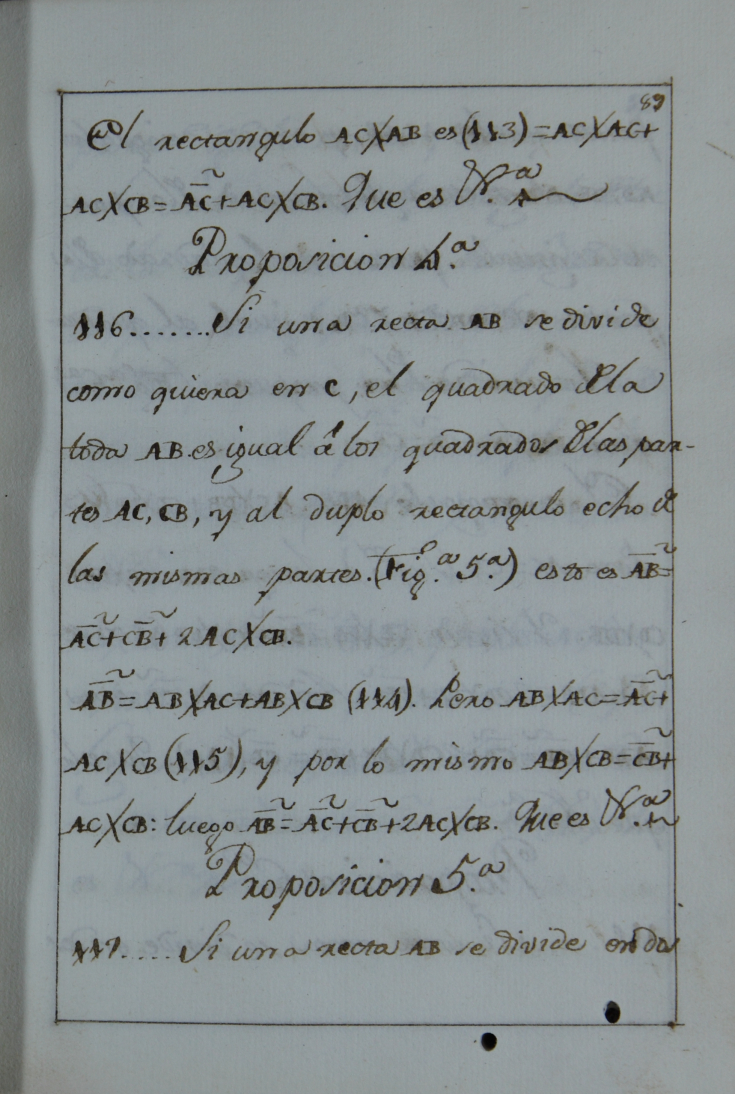 89
El rectangulo AC╳AB es (113) = AC╳AC+
AC╳CB = A͞C̃ + AC╳CB. Que es
Proposicion 4.ª
116....... Si una recta AB se divide
como quiera en C, el quadrado dela
toda AB es igual á los quadrados delas par-
tes AC, CB, y al duplo rectangulo echo de
las mismas partes. (Fig.ª 5.ª) esto es A͞B̃ =
A͞C̃ + C͞B̃ + 2 AC╳CB.
A͞B̃ = AB╳AC + AB╳CB (114). Pero AB╳AC = A͞C̃ +
AC╳CB (115), y por lo mismo AB╳CB = C͞B̃ +
AC╳CB: luego A͞B̃ = A͞C̃ + C͞B̃ + 2AC╳CB. Que es
Proposicion 5.ª
117..... Si una recta AB se divide en dos